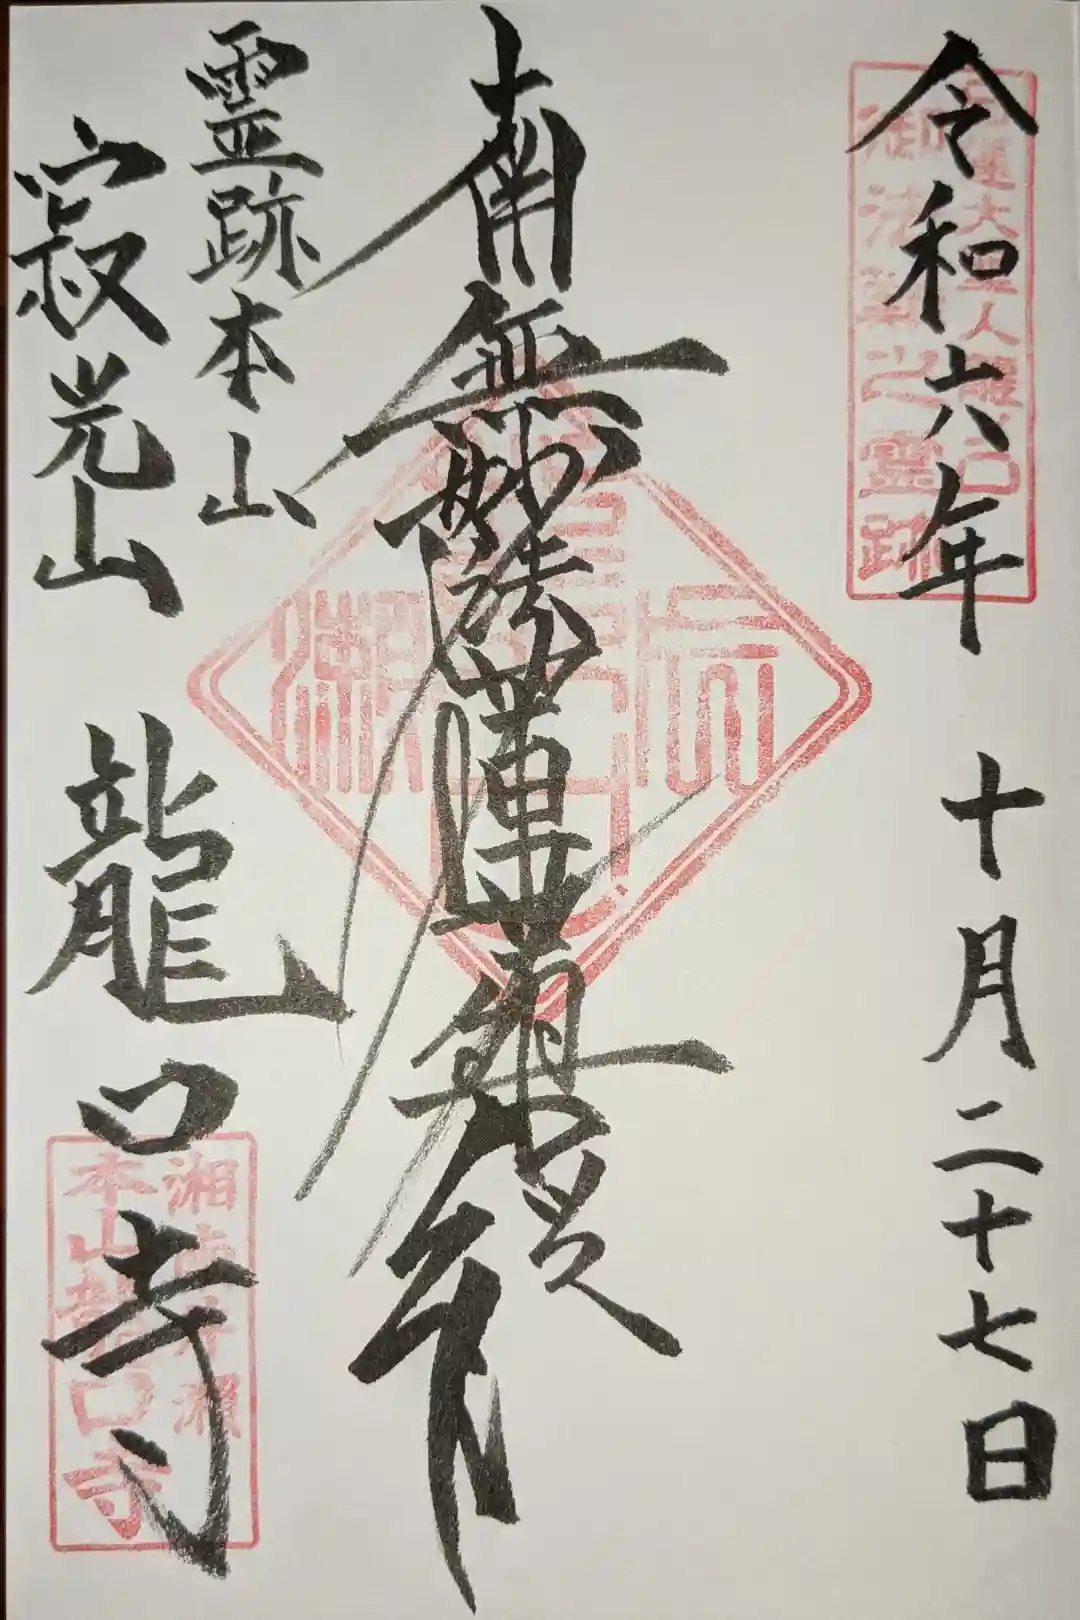 令和六年 十月二十七日
日蓮大聖人龍ノ口
御法難之霊跡
南無妙法蓮華経
霊跡本山
寂光山 龍口寺
湘南片瀬
本山龍口寺